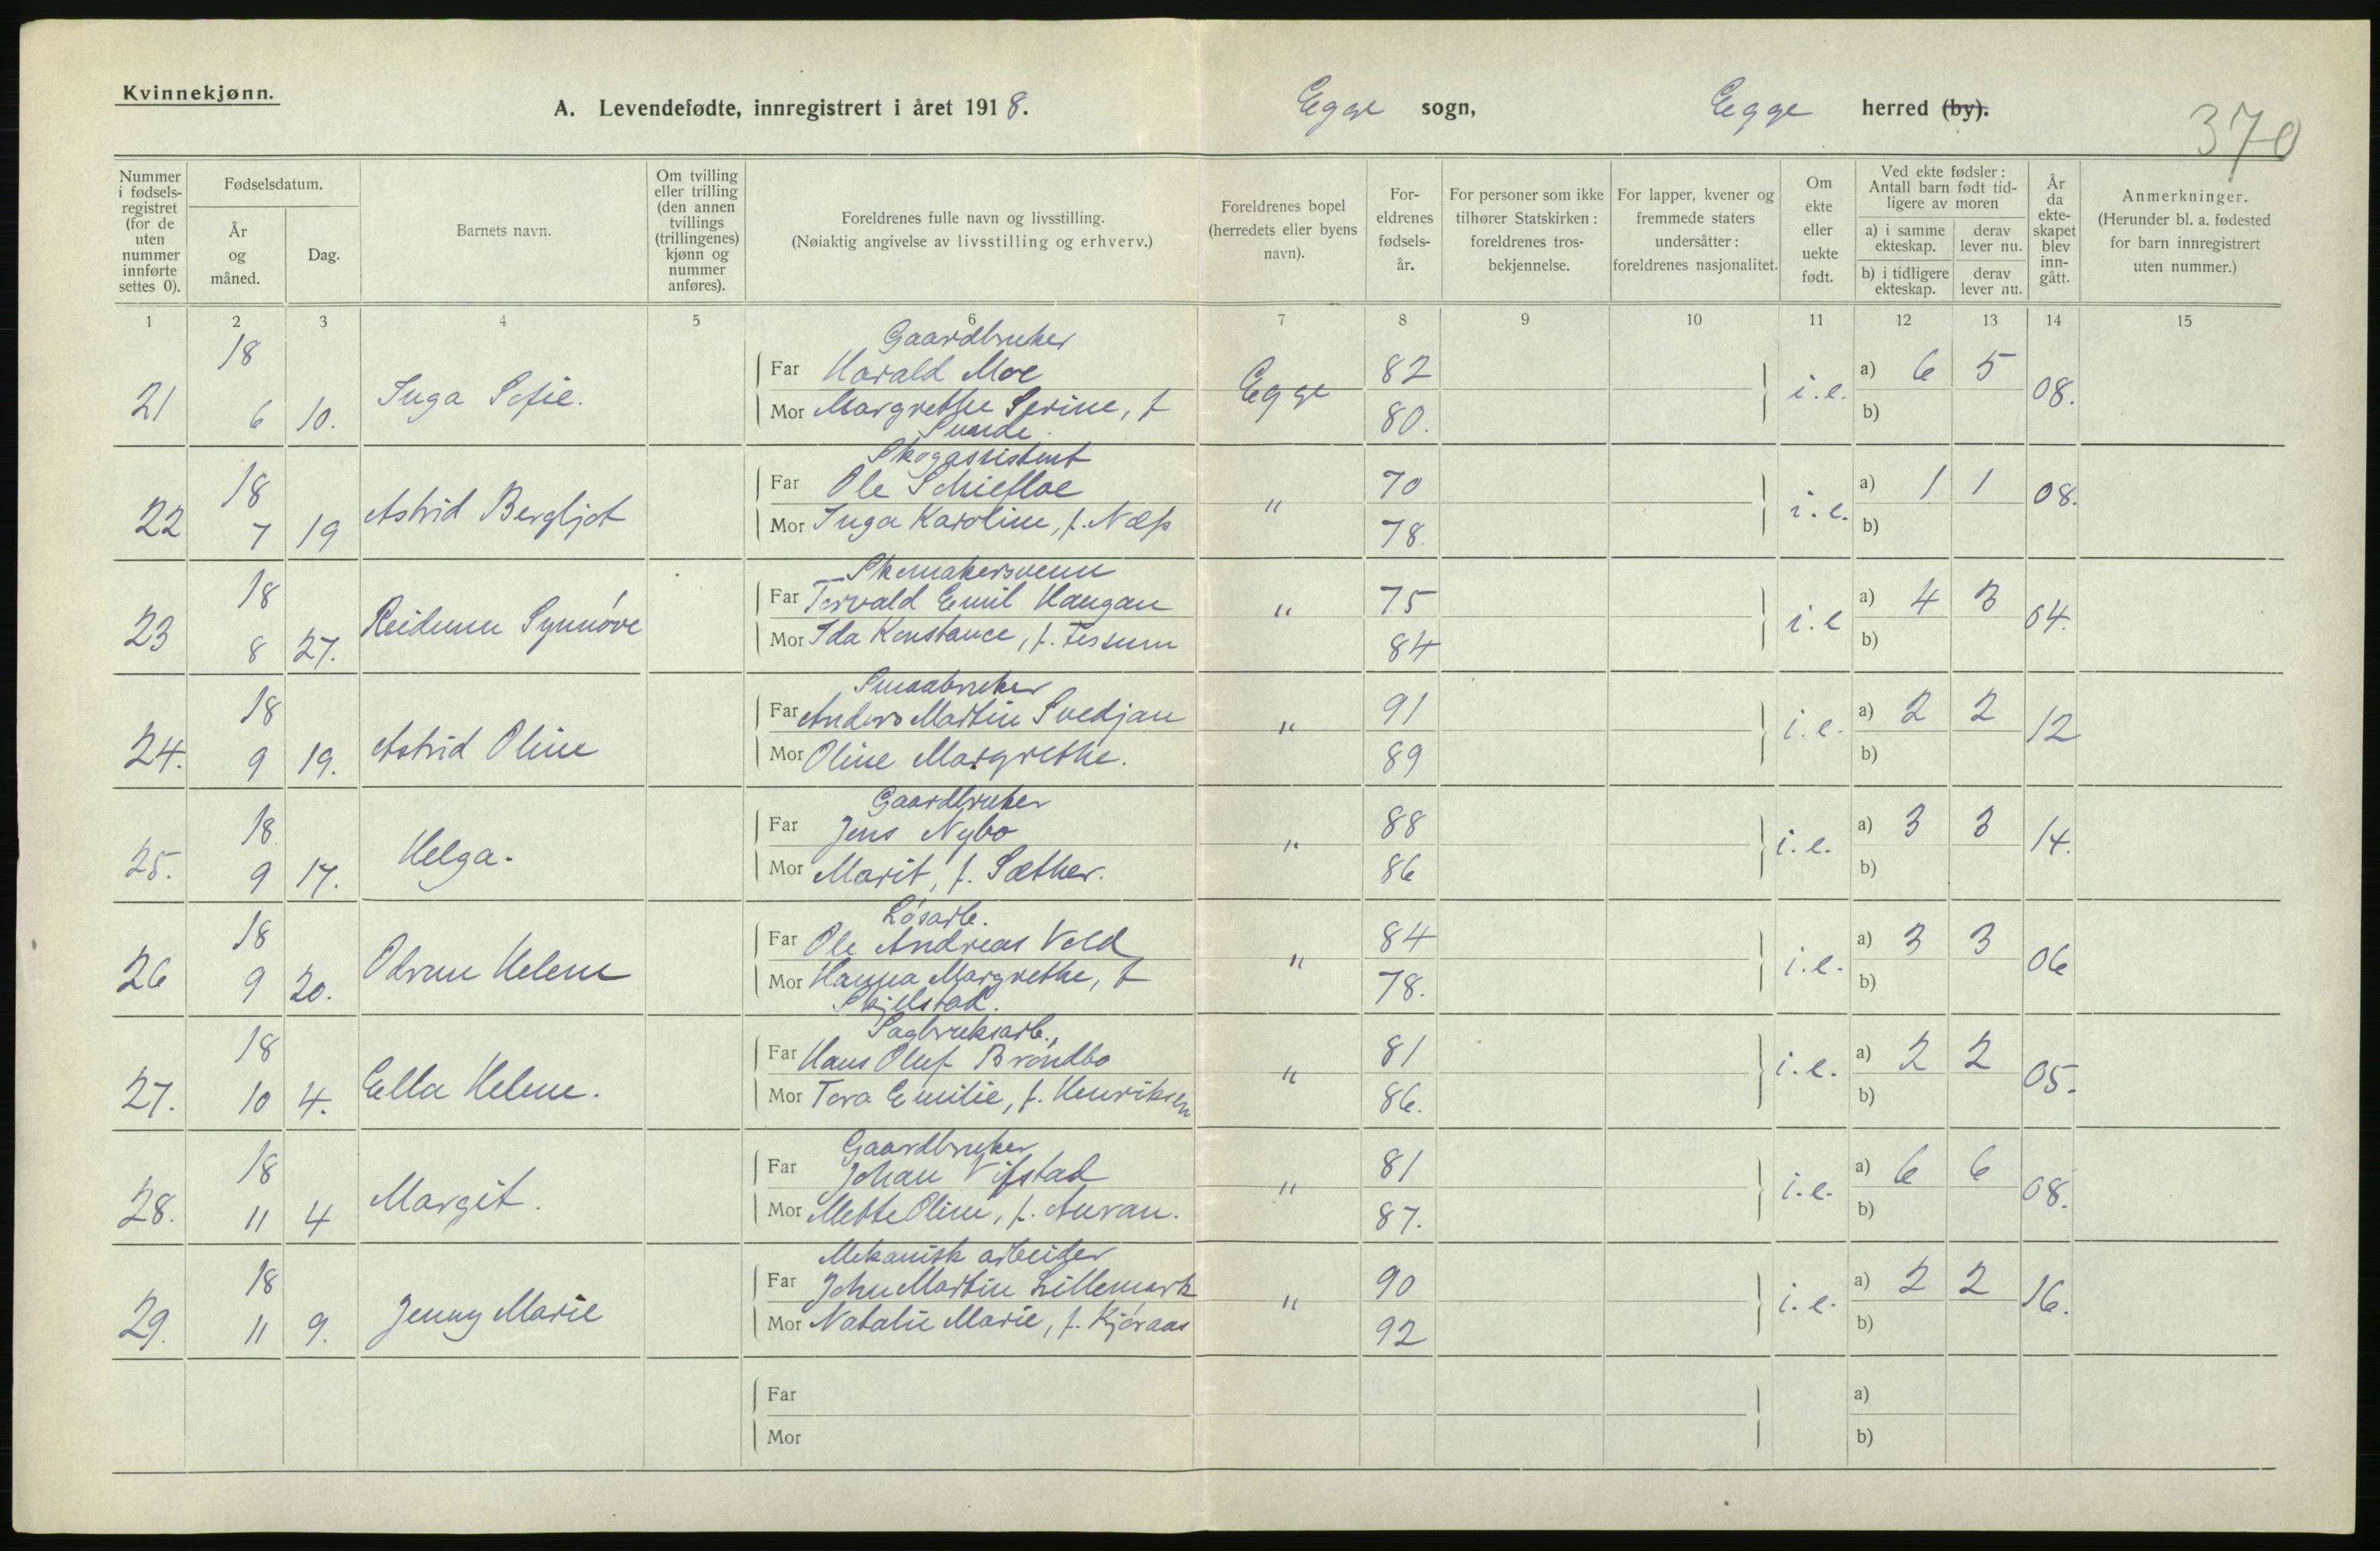 Kvinnekjønn.
A. Levendefødte, innregistrert i året 1918. Egge sogn, Egge herred (by).
370
Nummer i fødsels-registret (for de uten nummer innførte settes 0).
Fødselsdatum.
År og måned.
Dag.
Barnets navn.
Om tvilling eller trilling (den annen tvillings (trillingenes) kjønn og nummer anføres).
Foreldrenes fulle navn og livsstilling.
(Nøiaktig angivelse av livsstilling og erhverv.)
Foreldrenes bopel (herredets eller byens navn).
For-eldrenes fødsels-år.
For personer som ikke tilhører Statskirken: foreldrenes tros-bekjennelse.
For lapper, kvener og fremmede staters undersåtter: foreldrenes nasjonalitet.
Om ekte eller uekte født.
Ved ekte fødsler: Antall barn født tid-ligere av moren
a) i samme ekteskap.
derav lever nu.
b) i tidligere ekteskap.
derav lever nu.
År da ekte-skapet blev inn-gått.
Anmerkninger.
(Herunder bl. a. fødested for barn innregistrert uten nummer.)
1 2 3 4 5 6 7 8 9 10 11 12 13 14 15
18 Gaardbruker
Far Harald Moe Egge 82 a) 6 5
21 6 10. Inga Sofie. Mor Margrethe Serine, f 80. i.e. b) 08.
Sunde.
18 Skogassistent
Far Ole Schiefloe " 70 a) 1 1 08.
22 7 19 Astrid Bergljot Mor Inga Karoline, f. Næss 78. i.e. b)
18 Skomakersvenn
Far Torvald Emil Haugan " 75 a) 4 3
23 8 27. Reidunn Synnøve Mor Ida Konstance, f. Fossum 84 i.e b) 04.
18 Smaabruker
Far Anders Martin Svedjan " 91 a) 2 2
24. 9 19. Astrid Oline Mor Oline Margrethe. 89 i.e. b) 12
18 Gaardbruker
Far Jens Nybo " 88 a) 3 3
25. 9 17. Helga. Mor Marit, f. Sæther. 86 i.e. b) 14.
18 Løsarb.
Far Ole Andreas Vold " 84 a) 3 3
26 9 20. Odrun Helene Mor Hanna Margrethe, f 78. i.e. b) 06
Skjelstad.
18 Sagbruksarb.,
Far Hans Oluf Brøndbo " 81 a) 2 2
27. 10 4. Ella Helene. Mor Tora Emilie, f. Henriksen 86. i.e. b) 05.
18 Gaardbruker
Far Johan Vifstad " 81 a) 6 6
28. 11 4 Margit. Mor Mette Oline, f. Auran. 87. i.e. b) 08.
18 Mekanisk arbeider
Far John Martin Lillemark " 90 a) 2 2
29. 11 9. Jenny Marie Mor Natalie Marie, f. Kjøraas 92 i.e. b) 16.
Far a)
Mor b)